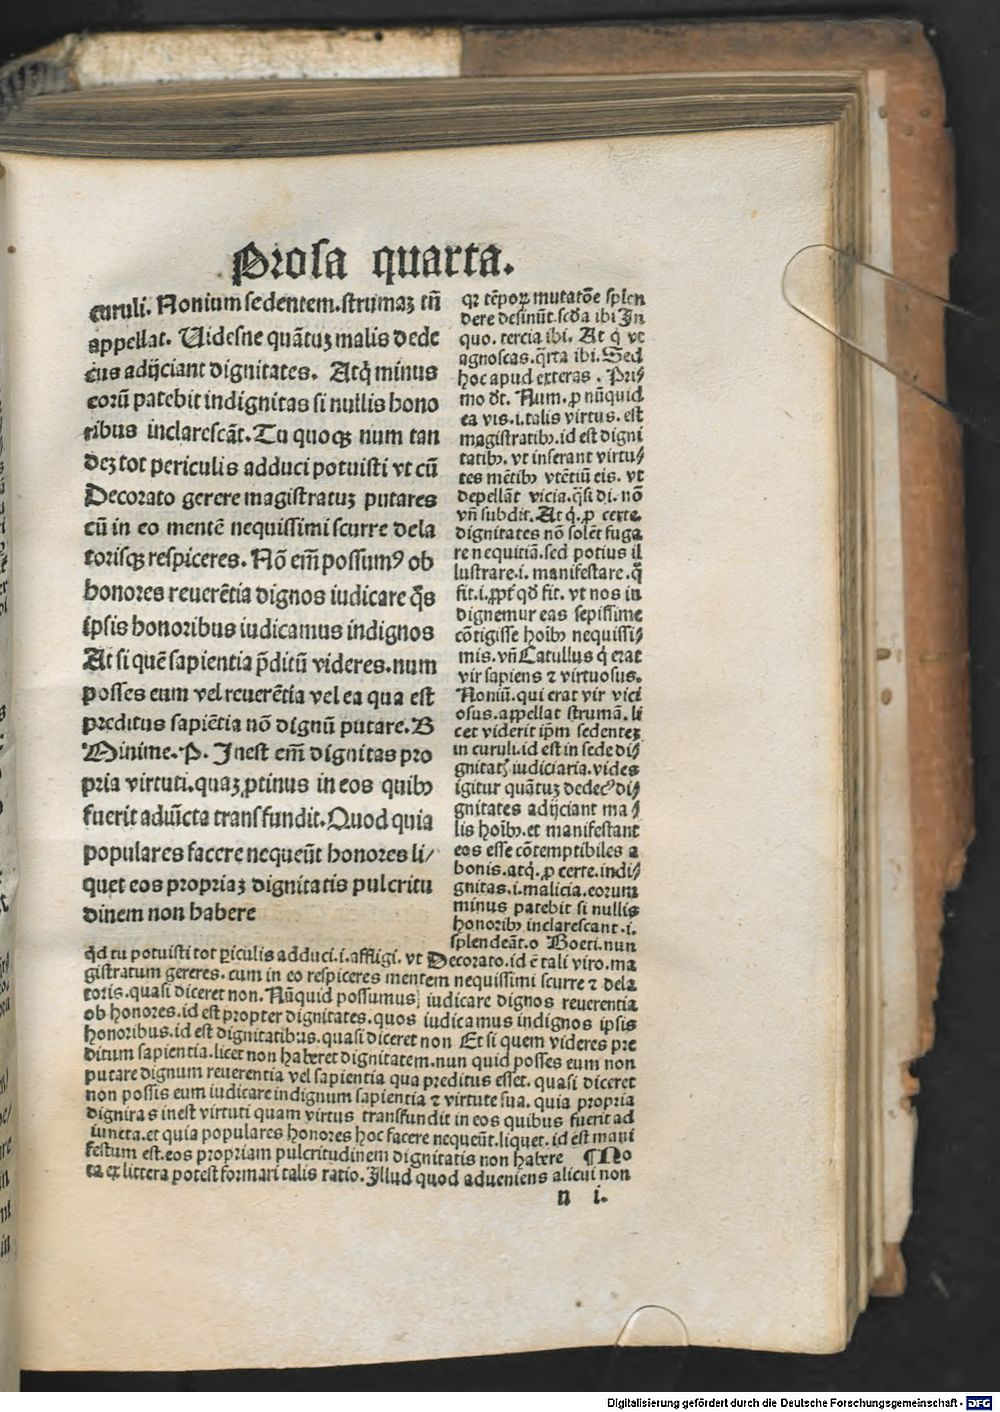 Prosa quarta.
curuli. Nonium sedentem.strumaꝫ tñ
appellat. Uidesne quãtuꝫ malis dede
cus adijciant dignitates. Atq̃ minus
eorũ patebit indignitas si nullis hono
ribus inclarescãt. Tu quoqꝫ num tan
deꝫ tot periculis adduci potuisti vt cũ
Decorato gerere magistratuꝫ putares
cũ in eo mentẽ nequissimi scurre dela
torisqꝫ respiceres. Nõ em̃ possumꝰ ob
honores reuerẽtia dignos iudicare q̃s
ipsis honoribus iudicamus indignos
At si quẽ sapientia p̃ditũ videres.num
posses eum vel reuerẽtia vel ea qua est
preditus sapiẽtia nõ dignũ putare. B
Minime. P. Inest em̃ dignitas pro
pria virtuti.quaꝫ ꝓtinus in eos quibꝰ
fuerit adiũcta transfundit. Quod quia
populares facere nequeũt honores li/
quet eos propriaꝫ dignitatis pulcritu
dinem non habere
qꝛ tẽpoꝝ mutatõe splen
dere desinũt.scd̃a ibi In
quo. tercia ibi. At q̃ vt
agnoscas.q̃rta ibi. Sed
hoc apud exteras . Pri/
mo dt̃. Num. ꝓ nũquid
ea vis.i.talis virtus. est
magistratibꝰ.id est digni
tatibꝰ. vt inserant virtu/
tes mẽtibꝰ vtẽtiũ eis. vt
depellãt vicia.q̃si di. nõ
vñ subdit. At q̃. ꝓ certe.
dignitates nõ solẽt fuga
re nequitiã.sed potius il
lustrare.i. manifestare.q̃
fit.i.ꝓpt̃ qd̃ fit. vt nos in
dignemur eas sepissime
cõtigisse hoĩbꝰ nequissi/
mis. vñ Catullus q̃ erat
vir sapiens ⁊ virtuosus.
Noniũ.qui erat vir vici
osus.appellat strumã. li
cet viderit ip̃m sedenteꝫ
in curuli.id est in sede di/
gnitatꝭ iudiciaria. vides
igitur quãtuꝫ dedecꝰ di/
gnitates adijciant ma/
lis hoĩbꝰ.et manifestant
eos esse cõtemptibiles a
bonis. atq̃. ꝓ certe. indi/
gnitas.i.malicia.eorum
minus patebit si nullis
honoribꝰ inclarescant.i.
splendeãt.o Boeti.nun
qd̃ tu potuisti tot ꝑiculis adduci.i.affligi. vt Decorato.id ẽ tali viro.ma
gistratum gereres. cum in eo respiceres mentem nequissimi scurre ⁊ dela
toris.quasi diceret non. Nũquid possumus iudicare dignos reuerentia
ob honores.id est propter dignitates.quos iudicamus indignos ipsis
honoribus.id est dignitatibus.quasi diceret non Et si quem videres pre
ditum sapientia.licet non haberet dignitatem.nun quid posses eum non
putare dignum reuerentia vel sapientia qua preditus esset. quasi diceret
non possis eum iudicare indignum sapientia ⁊ virtute sua. quia propria
dignitas inest virtuti quam virtus transfundit in eos quibus fuerit ad
iuncta.et quia populares honores hoc facere nequeũt.liquet. id est mani
festum est.eos propriam pulcritudinem dignitatis non habere ¶No
ta ex littera potest formari talis ratio. Illud quod adueniens alicui non
n i.
Digitalisierung gefördert durch die Deutsche Forschungsgemeinschaft - DFG